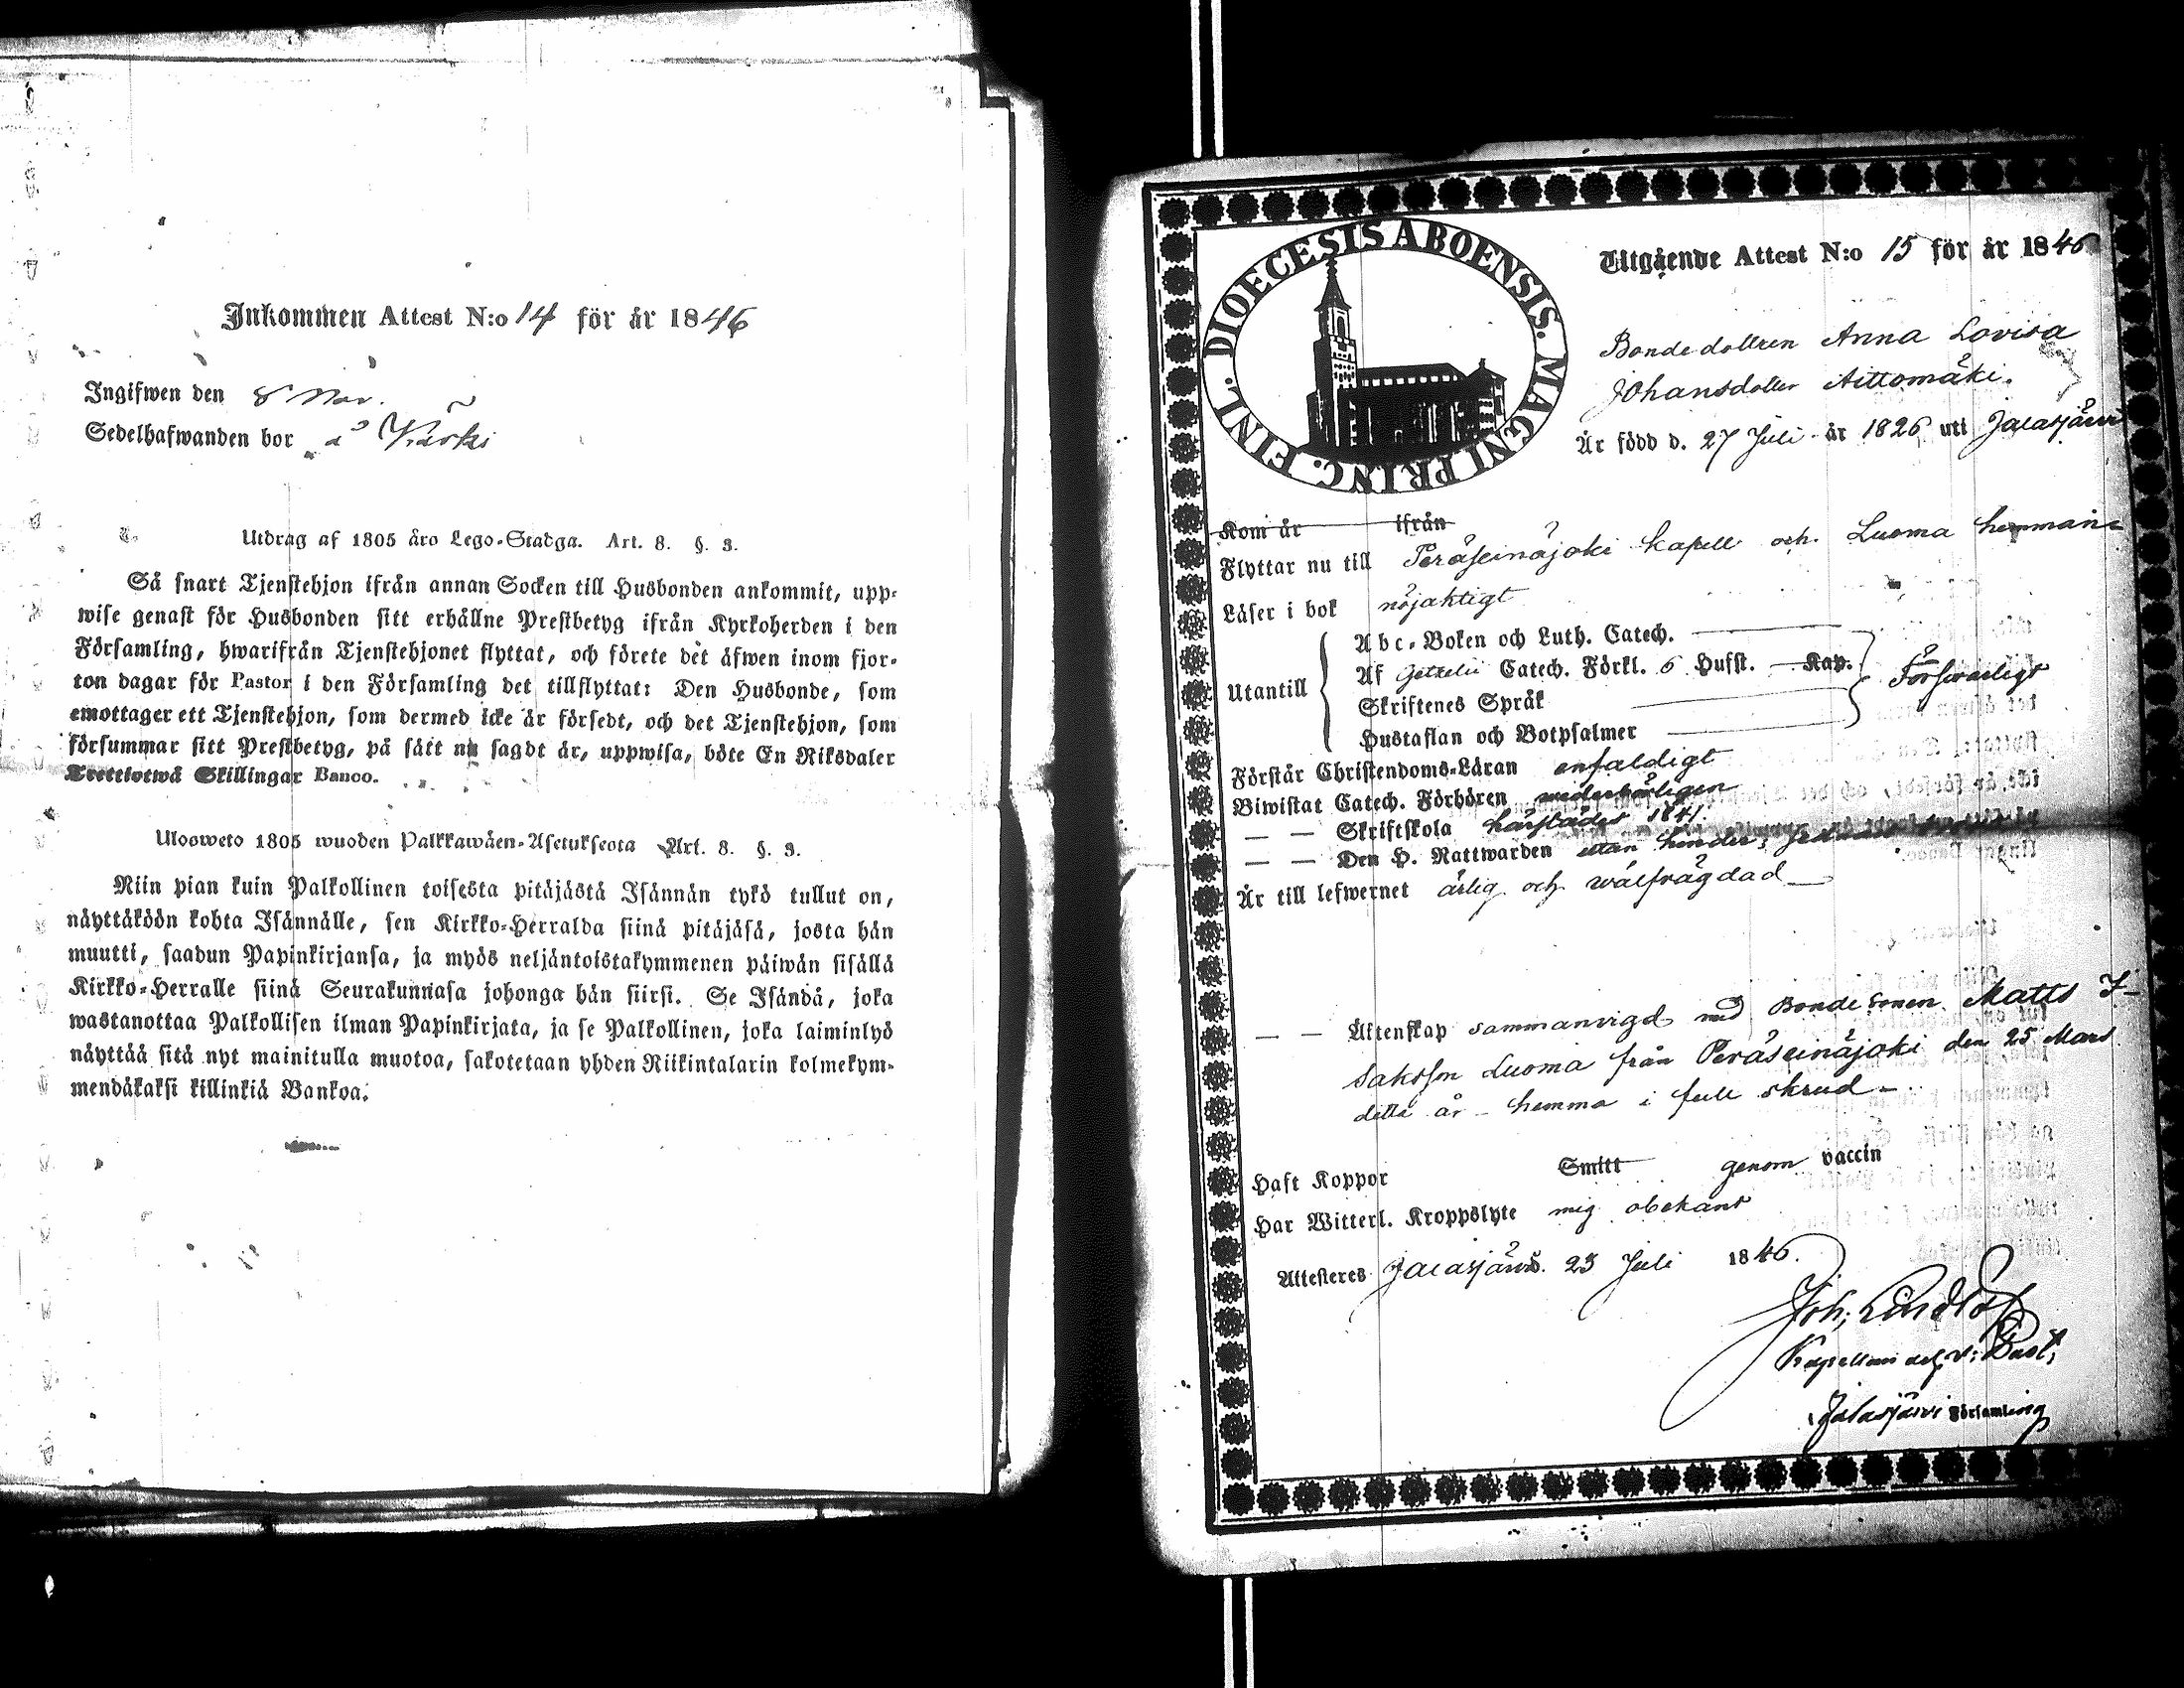 Inkommen Attest N:o 14 för år 1846
Ingifwen den 8 Nov.
Sedelhafwanden bor å Kärki
Utdrag af 1805 års Lego-Stadga. Art. 8. §. 3.
Så snart Tjenstehjon ifrån annan Socken till Husbonden ankommit, upp-
wise genast för Husbonden sitt erhållne Prestbetyg ifrån Kyrkoherden i den
Församling, hwarifrån Tjenstehjonet flyttat, och förete det äfwen inom fjor-
ton dagar för Pastor i den Församling det tillflyttat: Den Husbonde, som
emottager ett Tjenstehjon, som dermed icke är försedt, och det Tjenstehjon, som
försummar sitt Prestbetyg, på sätt nu sagdt är, uppwisa, böte En Riksdaler
Trettiotwå Skillingar Banco.
Ulosweto 1805 wuoden Palkkawäen-Asetuksesta Art. 8. §. 3.
Niin pian kuin Palkollinen toisesta pitäjästä Isännän tykö tullut on,
näyttäköön kohta Isännälle, sen Kirkko-Herralda siinä pitäjäsä, josta hän
muutti, saadun Papinkirjansa, ja myös neljäntoistakymmenen päiwän sisällä
Kirkko-Herralle siinä Seurakunnasa johonga hän siirsi. Se Isändä, joka
wastanottaa Palkollisen ilman Papinkirjata, ja se Palkollinen, joka laiminlyö
näyttää sitä nyt mainitulla muotoa, sakotetaan yhden Riikintalarin kolmekym-
mendäkaksi killinkiä Bankoa.
DIOECESIS ABOENSIS. MAGNI PRINC. FINL.
Utgående Attest N:o 15 för år 1846
Bondedottren Anna Lovisa
Johansdotter Aittomäki.
Är född d. 27 Juli år 1826 uti Jalasjärvi
Kom år ifrån
Flyttar nu till Peräseinäjoki kapell och Luoma hemman
Läser i bok nöjaktigt
Abc-Boken och Luth. Catech.
Utantill Af Gezelii Catech. Förkl. 6 Hufst. Kap. Försvarligt
Skriftenes Språk
Hustaflan och Botpsalmer
Förstår Christendoms-Läran enfaldigt
Biwistat Catech. Förhören wederbörligen
— — Skriftskola 1841.
— — Den H. Nattwarden utan hinder,
Är till lefwernet ärlig och wälfrägdad
— — Äktenskap sammanvigd med Bondesonen Matts I-
saksson Luoma från Peräseinäjoki den 25 Mars
detta år - hemma i full skrud -
Haft Koppor Smitt genom vaccin
Har Witterl. Kroppslyte mig obekant
Attesteres Jalasjärvi. 23 Juli 1846.
Joh. Lindlöf
Kapellan v: Past.
i Jalasjärvi Församling